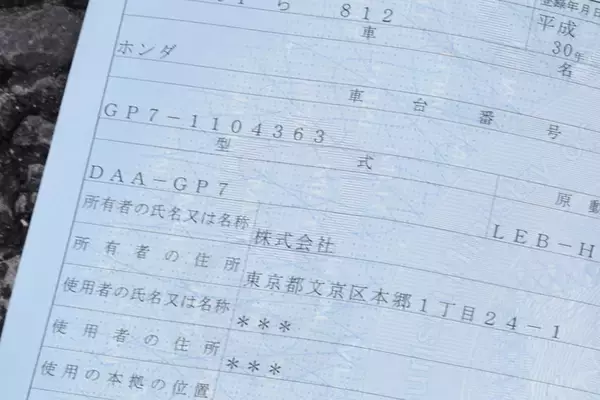 ら 812
登録年月日
平成
30年
車 名
ホンダ
車台番号
GP7-1104363
型式
原動
DAA-GP7
LEB-H
所有者の氏名又は名称
株式会社
所有者の住所
東京都文京区本郷1丁目24-1
使用者の氏名又は名称
***
使用者の住所
***
使用の本拠の位置